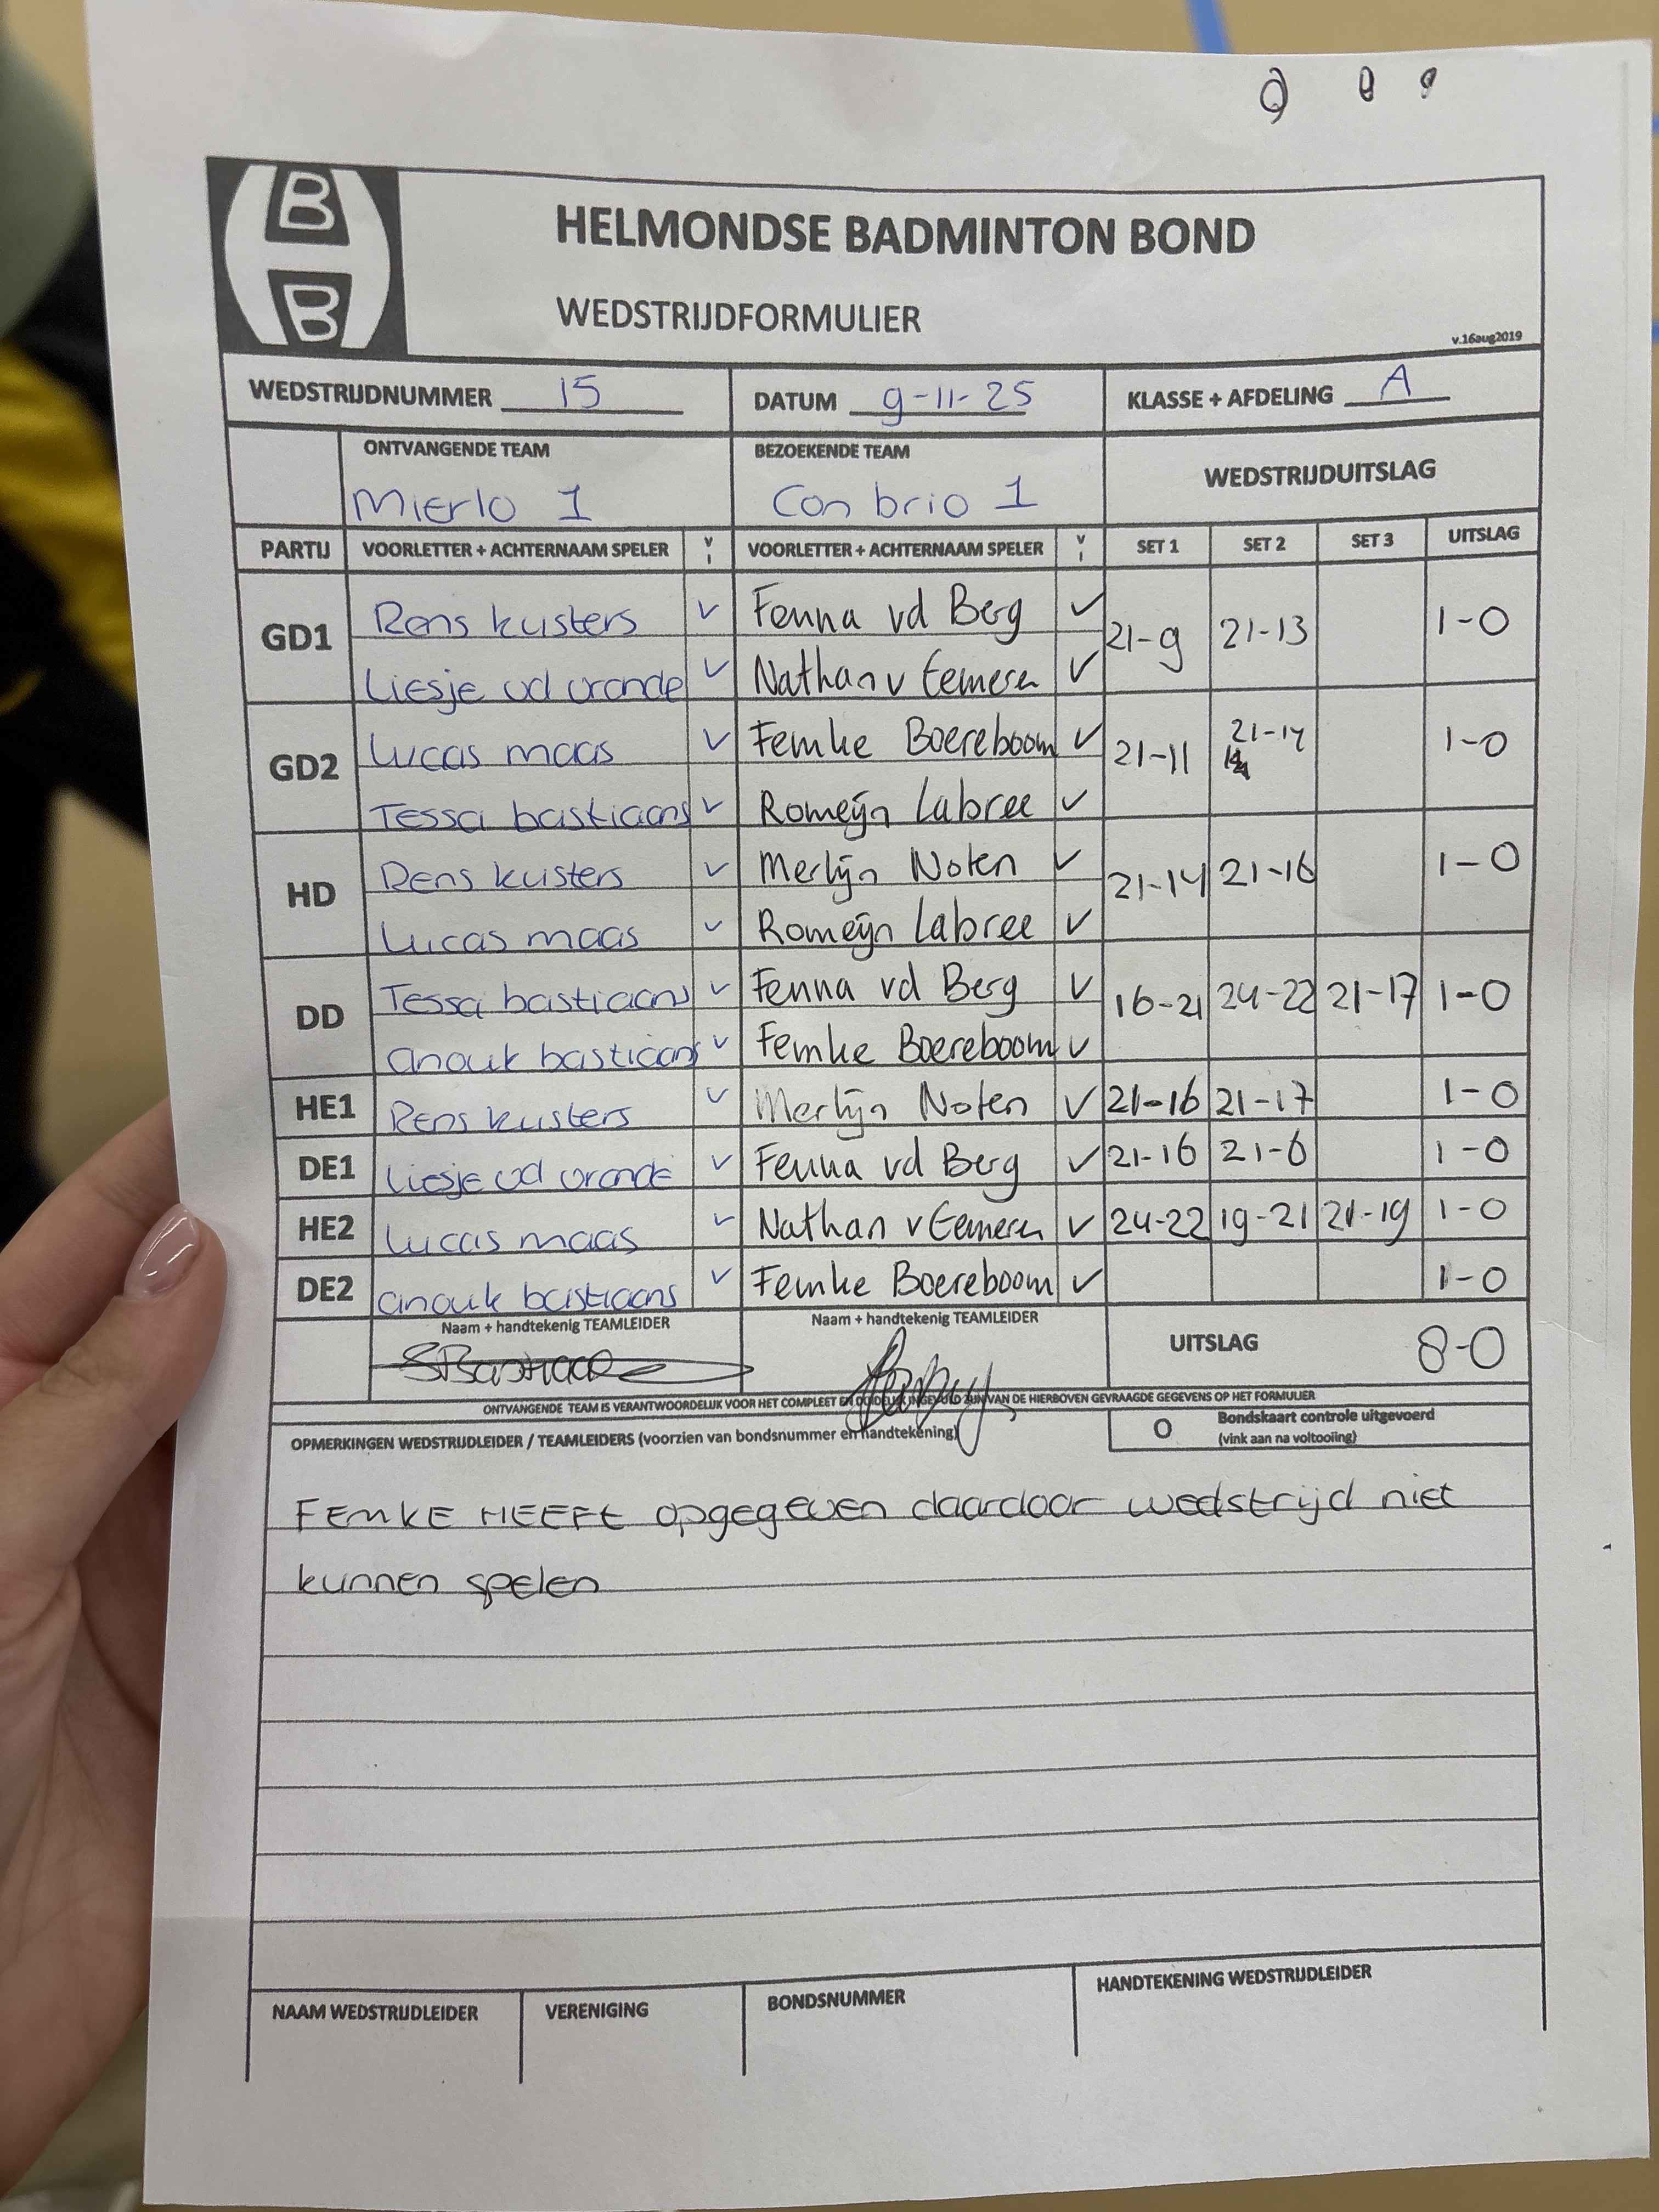 B
B
HELMONDSE BADMINTON BOND
WEDSTRIJDFORMULIER
v.16aug2019
WEDSTRIJDNUMMER 15 DATUM 9-11-25 KLASSE + AFDELING A
ONTVANGENDE TEAM BEZOEKENDE TEAM WEDSTRIJDUITSLAG
Mierlo 1 Con brio 1
PARTIJ VOORLETTER + ACHTERNAAM SPELER V I VOORLETTER + ACHTERNAAM SPELER V I SET 1 SET 2 SET 3 UITSLAG
GD1 Rens kusters ✓ Fenna vd Berg ✓ 21-9 21-13 1-0
Liesje vd vrande ✓ Nathan v Eemeren ✓
GD2 Lucas maas ✓ Femke Boereboom ✓ 21-11 21-14 1-0
Tessa bastiaans ✓ Romeijn Labree ✓
HD Rens kusters ✓ Merlijn Noten ✓ 21-14 21-16 1-0
Lucas maas ✓ Romeijn Labree ✓
DD Tessa bastiaans ✓ Fenna vd Berg ✓ 16-21 24-22 21-17 1-0
anouk bastiaans ✓ Femke Boereboom ✓
HE1 Rens kusters ✓ Merlijn Noten ✓ 21-16 21-17 1-0
DE1 Liesje vd vrande ✓ Fenna vd Berg ✓ 21-16 21-6 1-0
HE2 Lucas maas ✓ Nathan v Eemeren ✓ 24-22 19-21 21-19 1-0
DE2 anouk bastiaans ✓ Femke Boereboom ✓ 1-0
Naam + handtekenig TEAMLEIDER Naam + handtekenig TEAMLEIDER UITSLAG 8-0
ONTVANGENDE TEAM IS VERANTWOORDELIJK VOOR HET COMPLEET EN DUIDELIJK INGEVULD ZIJN VAN DE HIERBOVEN GEVRAAGDE GEGEVENS OP HET FORMULIER
OPMERKINGEN WEDSTRIJDLEIDER / TEAMLEIDERS (voorzien van bondsnummer en handtekening) O Bondskaart controle uitgevoerd
(vink aan na voltooiing)
FEMKE HEEFT opgegeven daardoor wedstrijd niet
kunnen spelen
NAAM WEDSTRIJDLEIDER VERENIGING BONDSNUMMER HANDTEKENING WEDSTRIJDLEIDER